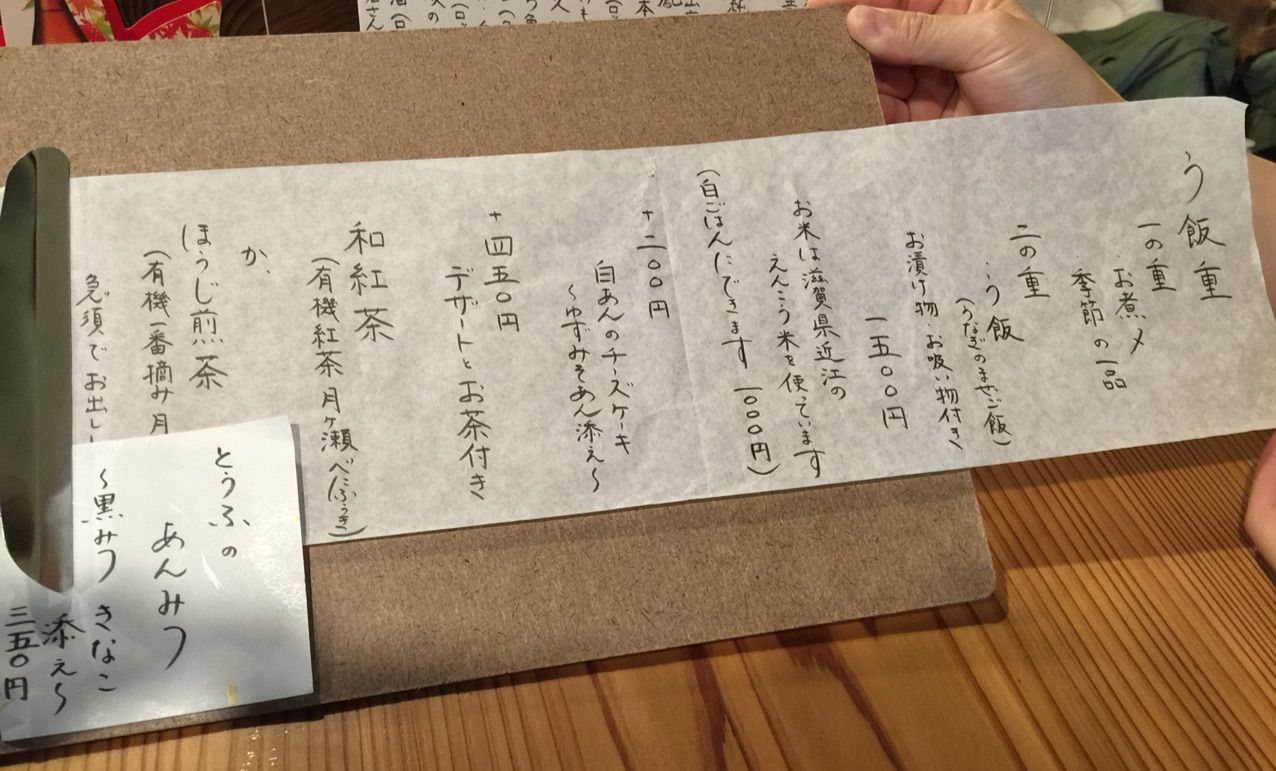 う飯重
一の重
・お煮〆
・季節の一品
二の重
・う飯
(うなぎのまぜご飯)
お漬け物・お吸い物付き
一五〇〇円
お米は滋賀県近江の
えんこう米を使っています
(白ごはんにできます 一〇〇〇円)
+二〇〇円
白あんのチーズケーキ
〜ゆずみそあん添え〜
+四五〇円
デザートとお茶付き
和紅茶
(有機紅茶月ヶ瀬べにふうき)
か、
ほうじ煎茶
(有機一番摘み月
急須でお出し
とうふの
あんみつ
〜黒みつ きなこ
添え〜
三五〇円